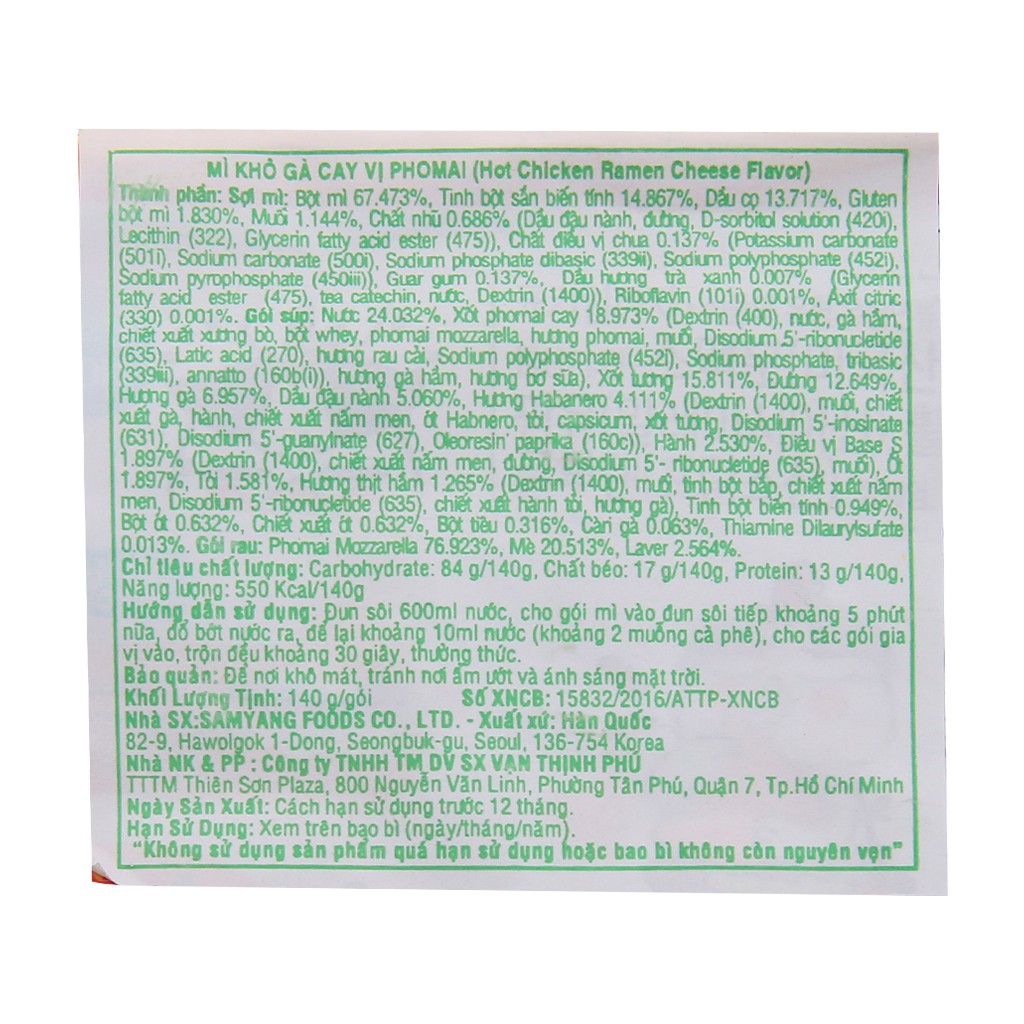 MÌ KHÔ GÀ CAY VỊ PHOMAI (Hot Chicken Ramen Cheese Flavor)
Thành phần: Sợi mì: Bột mì 67.473%, Tinh bột sắn biến tính 14.867%, Dầu cọ 13.717%, Gluten
bột mì 1.830%, Muối 1.144%, Chất nhũ 0.686% (Dầu đậu nành, đường, D-sorbitol solution (420i),
Lecithin (322), Glycerin fatty acid ester (475)), Chất điều vị chua 0.137% (Potassium carbonate
(501i), Sodium carbonate (500i), Sodium phosphate dibasic (339ii), Sodium polyphosphate (452i),
Sodium pyrophosphate (450iii)), Guar gum 0.137%, Dầu hương trà xanh 0.007% (Glycerin
fatty acid ester (475), tea catechin, nước, Dextrin (1400)), Riboflavin (101i) 0.001%, Axit citric
(330) 0.001%. Gói súp: Nước 24.032%, Xốt phomai cay 18.973% (Dextrin (400), nước, gà hầm,
chiết xuất xương bò, bột whey, phomai mozzarella, hương phomai, muối, Disodium 5'-ribonucletide
(635), Latic acid (270), hương rau cải, Sodium polyphosphate (452i), Sodium phosphate, tribasic
(339iii), annatto (160b(i)), hương gà hầm, hương bơ sữa), Xốt tương 15.811%, Đường 12.649%,
Hương gà 6.957%, Dầu đậu nành 5.060%, Hương Habanero 4.111% (Dextrin (1400), muối, chiết
xuất gà, hành, chiết xuất nấm men, ớt Habnero, tỏi, capsicum, xốt tương, Disodium 5'-inosinate
(631), Disodium 5'-guanylnate (627), Oleoresin paprika (160c)), Hành 2.530%, Điều vị Base S
1.897% (Dextrin (1400), chiết xuất nấm men, đường, Disodium 5'- ribonucletide (635), muối), Ớt
1.897%, Tỏi 1.581%, Hương thịt hầm 1.265% (Dextrin (1400), muối, tinh bột bắp, chiết xuất nấm
men, Disodium 5'-ribonucletide (635), chiết xuất hành tỏi, hương gà), Tinh bột biến tính 0.949%,
Bột ớt 0.632%, Chiết xuất ớt 0.632%, Bột tiêu 0.316%, Càri gà 0.063%, Thiamine Dilaurylsufate
0.013%. Gói rau: Phomai Mozzarella 76.923%, Mè 20.513%, Laver 2.564%.
Chỉ tiêu chất lượng: Carbohydrate: 84 g/140g, Chất béo: 17 g/140g, Protein: 13 g/140g,
Năng lượng: 550 Kcal/140g
Hướng dẫn sử dụng: Đun sôi 600ml nước, cho gói mì vào đun sôi tiếp khoảng 5 phút
nữa, đổ bớt nước ra, để lại khoảng 10ml nước (khoảng 2 muỗng cà phê), cho các gói gia
vị vào, trộn đều khoảng 30 giây, thưởng thức.
Bảo quản: Để nơi khô mát, tránh nơi ẩm ướt và ánh sáng mặt trời.
Khối Lượng Tịnh: 140 g/gói Số XNCB: 15832/2016/ATTP-XNCB
Nhà SX:SAMYANG FOODS CO., LTD. - Xuất xứ: Hàn Quốc
82-9, Hawolgok 1-Dong, Seongbuk-gu, Seoul, 136-754 Korea
Nhà NK & PP : Công ty TNHH TM DV SX VẠN THỊNH PHÚ
TTTM Thiên Sơn Plaza, 800 Nguyễn Văn Linh, Phường Tân Phú, Quận 7, Tp.Hồ Chí Minh
Ngày Sản Xuất: Cách hạn sử dụng trước 12 tháng.
Hạn Sử Dụng: Xem trên bao bì (ngày/tháng/năm).
"Không sử dụng sản phẩm quá hạn sử dụng hoặc bao bì không còn nguyên vẹn"